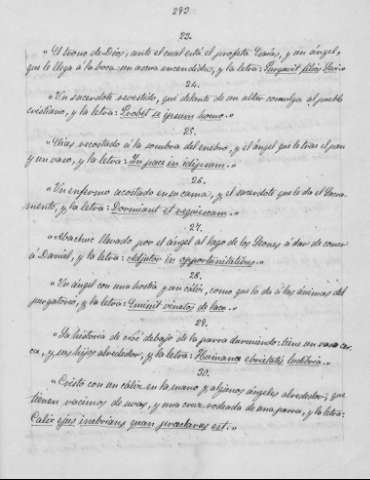 293
23.
"El trono de Dios, ante el cual está el profeta Isaías, y un ángel,
que le llega á la boca un ascua encendida, y la letra: Purgavit filios Levi."
24.
"Un sacerdote revestido, qui delante de un altar comulga al pueblo
cristiano, y la letra: Probet se ipsum homo."
25.
"Elías recostado á la sombra del enebro, y el ángel que le trae el pan
y un vaso, y la letra: In pace in idipsum."
26.
"Un enfermo acostado en su cama, y el sacerdote que le da el Sacra-
mento, y la letra: Dormiant et requiescam."
27.
"Abachuc llevado por el ángel al lago de los leones á dar de comer
á Daniel, y la letra: Adjutor in opportunitatibus."
28.
"Un ángel con una hostia y un cáliz, como que lo da á las ánimas del
purgatorio, y la letra: Emisit vinctos de lacu."
29.
"La historia de Noé debajo de la parra durmiendo: tiene un vaso cer-
ca, y sus hijos alrededor, y la letra: Humana ebrietatis ludibria."
30.
"Cristo con un cáliz en la mano y algunos ángeles alrededor, que
tienen racimos de uvas, y una cruz rodeada de una parra, y la letra:
Calix ejus inebrians quam praeclarus est."